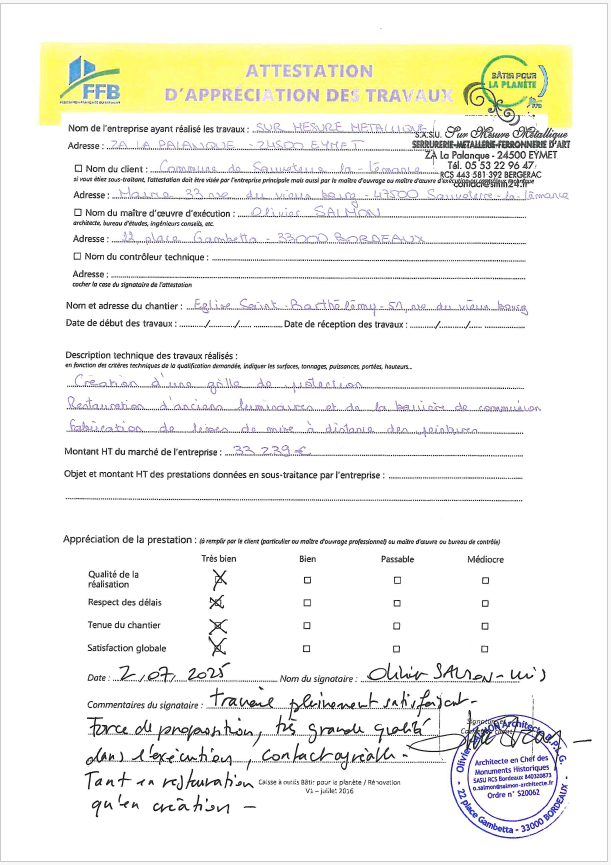 FFB
FEDERATION FRANCAISE DU BATIMENT
ATTESTATION
D'APPRÉCIATION DES TRAVAUX
BÂTIR POUR
LA PLANÈTE
FFB
Nom de l'entreprise ayant réalisé les travaux : SUR MESURE METALLIQUE
S.A.S.U. Sur Mesure Métallique
SERRURERIE-METALLERIE-FERRONNERIE D'ART
ZA La Palanque - 24500 EYMET
Tél. 05 53 22 96 47
RCS 443 581 392 BERGERAC
contact@smm24.fr
Adresse : ZA LA PALANQUE - 24500 EYMET
☐ Nom du client : Commune de Sauveterre-la-Lémance
si vous étiez sous-traitant, l'attestation doit être visée par l'entreprise principale mais aussi par le maître d'ouvrage ou maître d'œuvre d'exécution ou bureau de contrôle technique
Adresse : Mairie 33 rue du vieux bourg - 47500 Sauveterre-la-Lémance
☐ Nom du maître d'œuvre d'exécution : Olivier SALMON
architecte, bureau d'études, ingénieurs conseils, etc.
Adresse : 22 place Gambetta - 33000 BORDEAUX
☐ Nom du contrôleur technique :
Adresse :
cocher la case du signataire de l'attestation
Nom et adresse du chantier : Eglise Saint-Barthélémy - 51, rue du vieux bourg
Date de début des travaux : ......../......../........ Date de réception des travaux : ......../......../........
Description technique des travaux réalisés :
en fonction des critères techniques de la qualification demandée, indiquer les surfaces, tonnages, puissances, portées, hauteurs...
Création d'une grille de protection
Restauration d'anciens luminaires et de la barrière de communion
Fabrication de lisses de mise à distance des peintures
Montant HT du marché de l'entreprise : 33 239 €
Objet et montant HT des prestations données en sous-traitance par l'entreprise :
Appréciation de la prestation : (à remplir par le client (particulier ou maître d'ouvrage professionnel) ou maître d'œuvre ou bureau de contrôle)
Très bien Bien Passable Médiocre
Qualité de la
réalisation ☒ ☐ ☐ ☐
Respect des délais ☒ ☐ ☐ ☐
Tenue du chantier ☒ ☐ ☐ ☐
Satisfaction globale ☒ ☐ ☐ ☐
Date : 2/07/2025 Nom du signataire : Olivier SALMON
Commentaires du signataire : travail pleinement satisfaisant.
Force de proposition, très grande qualité
dans l'exécution, contact agréable -
Tant en restauration
qu'en création -
Caisse à outils Bâtir pour la planète / Rénovation
V1 – juillet 2016
Olivier SALMON Architecte D.P.L.G.
Architecte en Chef des
Monuments Historiques
SASU RCS Bordeaux 840320873
o.salmon@salmon-architecte.fr
Ordre n° S20062
22 place Gambetta - 33000 BORDEAUX